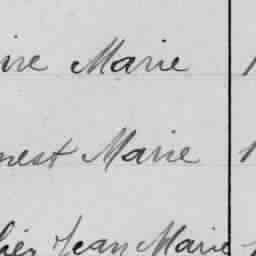 ine Marie
nest Marie
Jean Marie